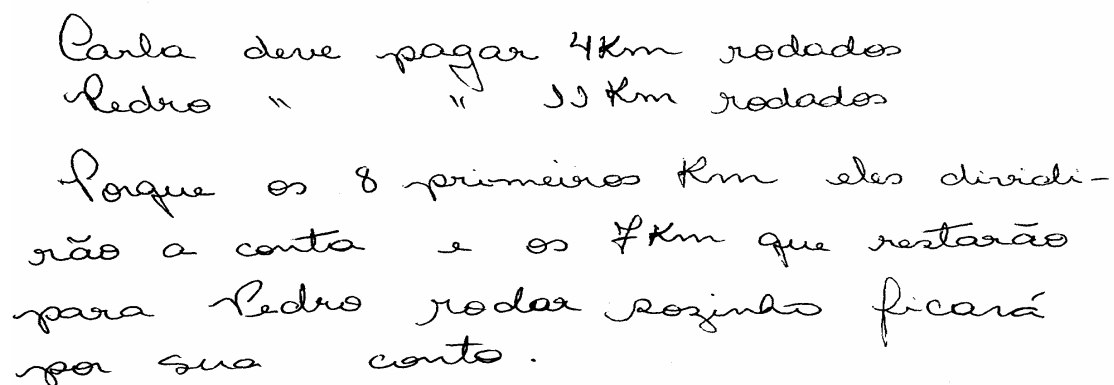 Carla deve pagar 4Km rodados
Pedro " " 11 Km rodados
Porque os 8 primeiros Km eles dividi-
rão a conta e os 7Km que restarão
para Pedro rodar sozinho ficará
por sua conta.